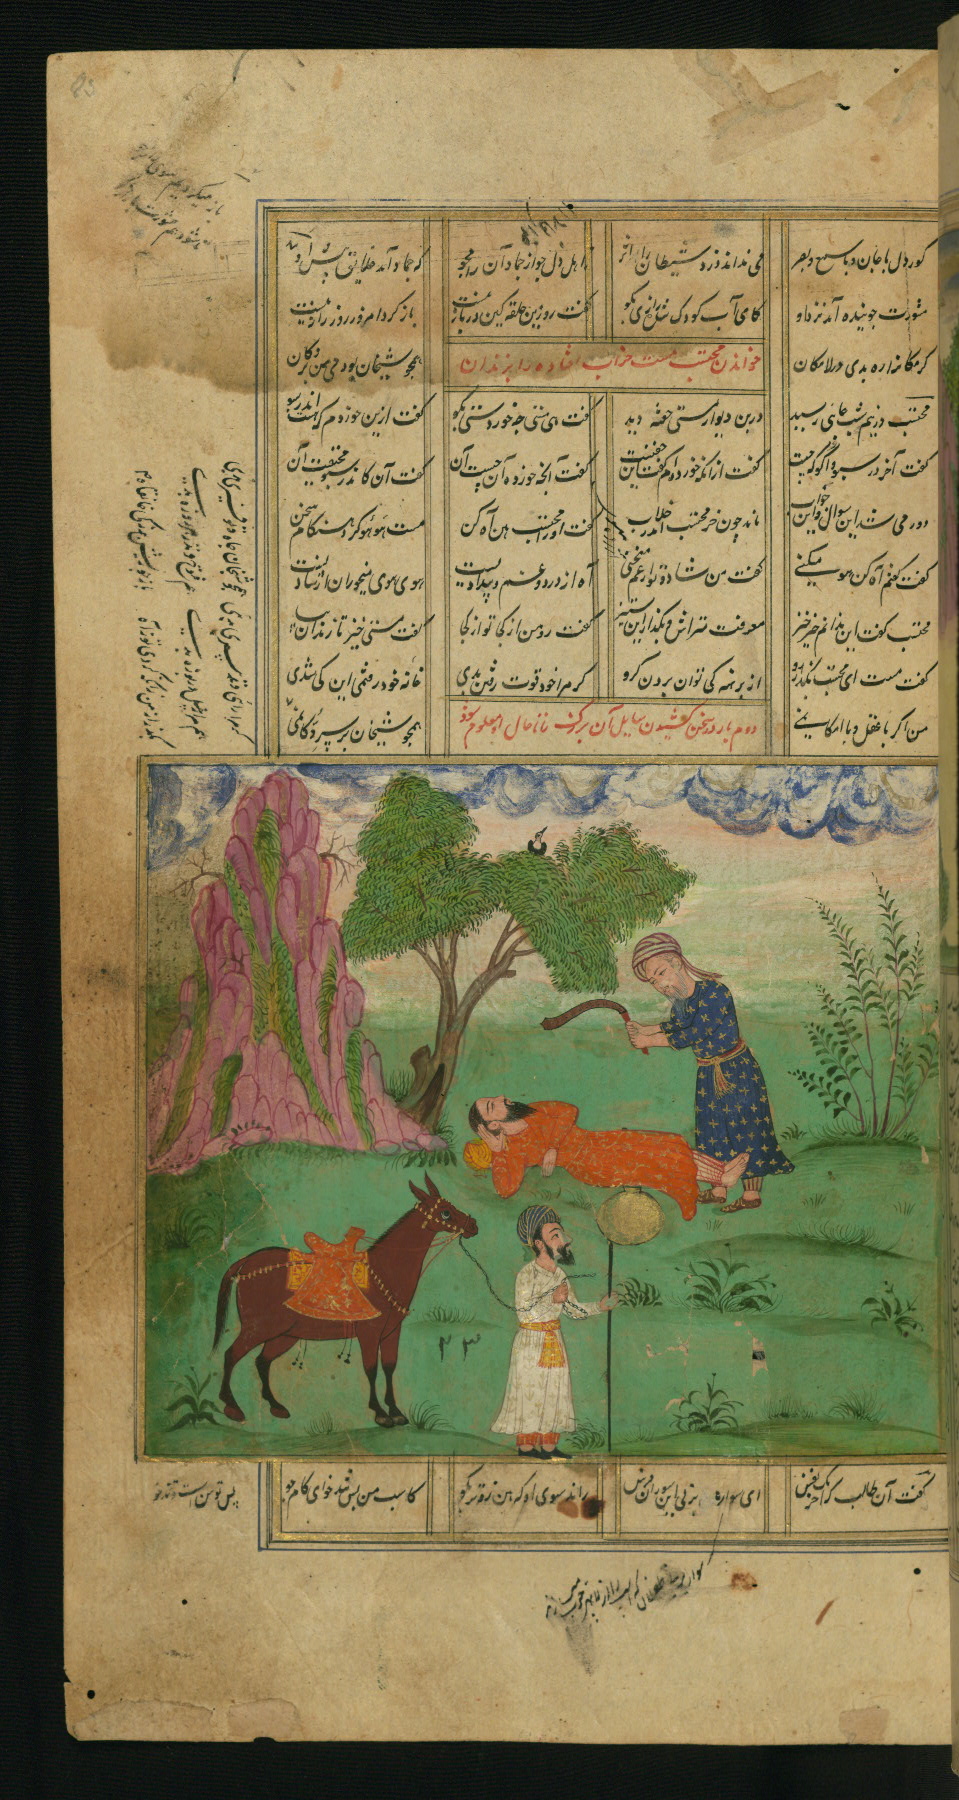 کوردل با جان و با سمع و بصر می نداند دزد شیطان را ز اثر ز اهل دل جو از جماد آن را مجو که جماد آمد خلایق پیش او
مشورت جوینده آمد نزد او کای اب کودک شده رازی بگو گفت رو زین حلقه کین در باز نیست باز گرد امروز روز راز نیست
گر مکان را ره بدی در لامکان همچو شیخان بودمی من بر دکان
خواندن محتسب مست خراب افتاده را بزندان
محتسب در نیم شب جایی رسید در بن دیوار مستی خفته دید گفت هی مستی چه خوردستی بگو گفت ازین خوردم که هست اندر سبو
گفت آخر در سبو واگو که چیست گفت از آنکه خورده ام گفت این خفیست گفت آنچه خورده آن چیست آن گفت آن کاندر سبو مخفیست آن
دور می شد این سوال و این جواب ماند چون خر محتسب اندر خلاب گفت او را محتسب هین آه کن مست هو هو کرد هنگام سخن
گفت گفتم آه کن هو میکنی گفت من شادم تو از غم منحنی آه از درد و غم و بیدادیست هوی هوی می خوران از شادیست
محتسب گفت این ندانم خیز خیز معرفت متراش و بگذار این ستیز گفت رو من از کجا تو از کجا گفت مستی خیز تا زندان بیا
گفت مست ای محتسب بگذار و رو از برهنه کی توان بردن گرو گر مرا خود قوت رفتن بدی خانه خود رفتمی این کی شدی
من اگر با عقل و با امکانمی همچو شیخان بر سر دکانمی
دوم بار در سخن کشیدن سایل آن بزرگ را تا حال او معلوم شود
۲۳
گفت آن طالب که آخر یک نفس ای سواره بر نی این سو ران فرس راند سوی او که هین زوتر بگو کاسب من بس تندخوی گام جو